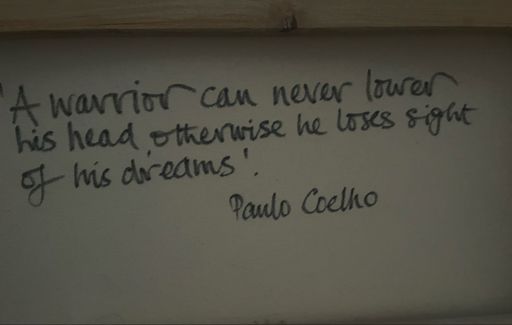 'A warrior can never lower
his head, otherwise he loses sight
of his dreams'.
Paulo Coelho